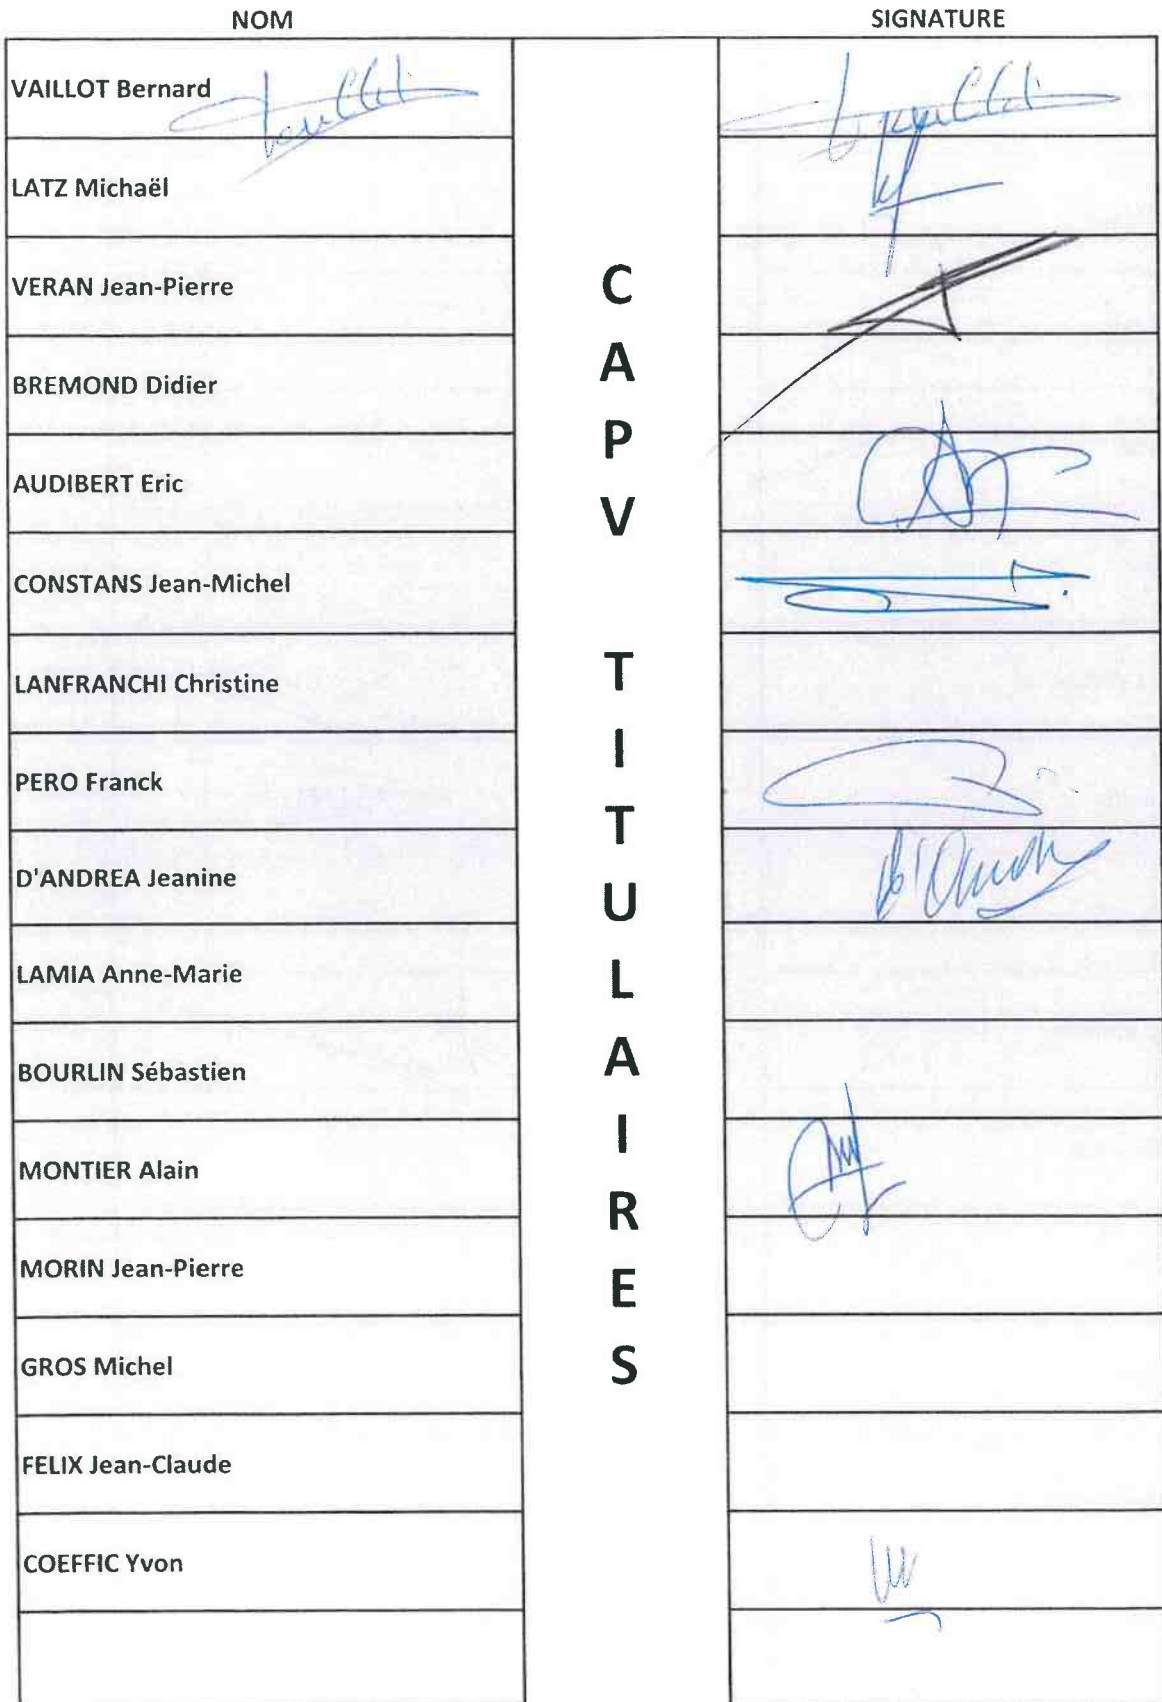 NOM SIGNATURE
VAILLOT Bernard
LATZ Michaël
VERAN Jean-Pierre
BREMOND Didier
AUDIBERT Eric
CONSTANS Jean-Michel
LANFRANCHI Christine
PERO Franck
D'ANDREA Jeanine
LAMIA Anne-Marie
BOURLIN Sébastien
MONTIER Alain
MORIN Jean-Pierre
GROS Michel
FELIX Jean-Claude
COEFFIC Yvon
C
A
P
V
T
I
T
U
L
A
I
R
E
S